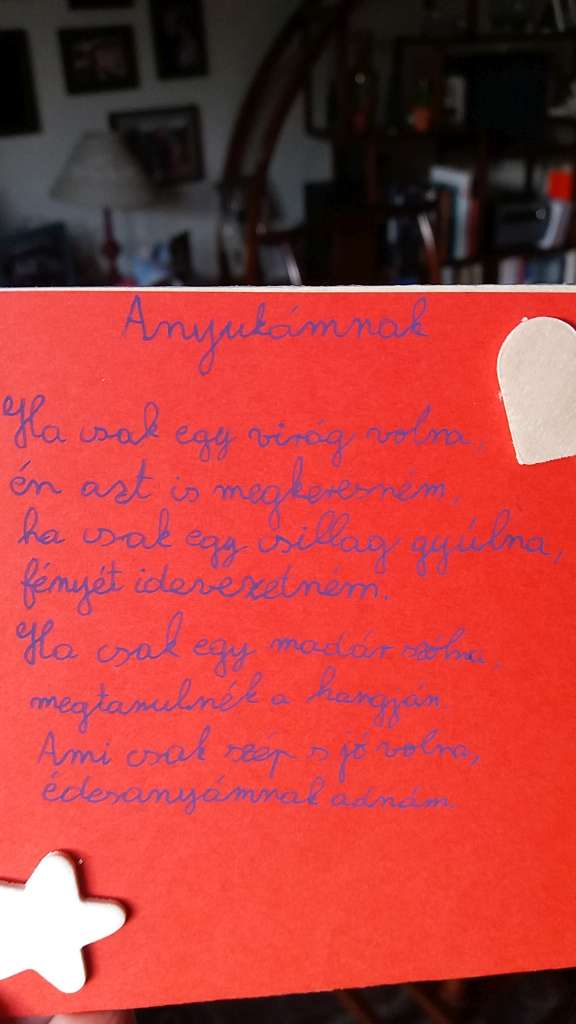 Anyukámnak
Ha csak egy virág volna,
én azt is megkeresném,
ha csak egy csillag gyúlna,
fényét idevezetném.
Ha csak egy madár szólna,
megtanulnék a hangján.
Ami csak szép s jó volna,
édesanyámnak adnám.